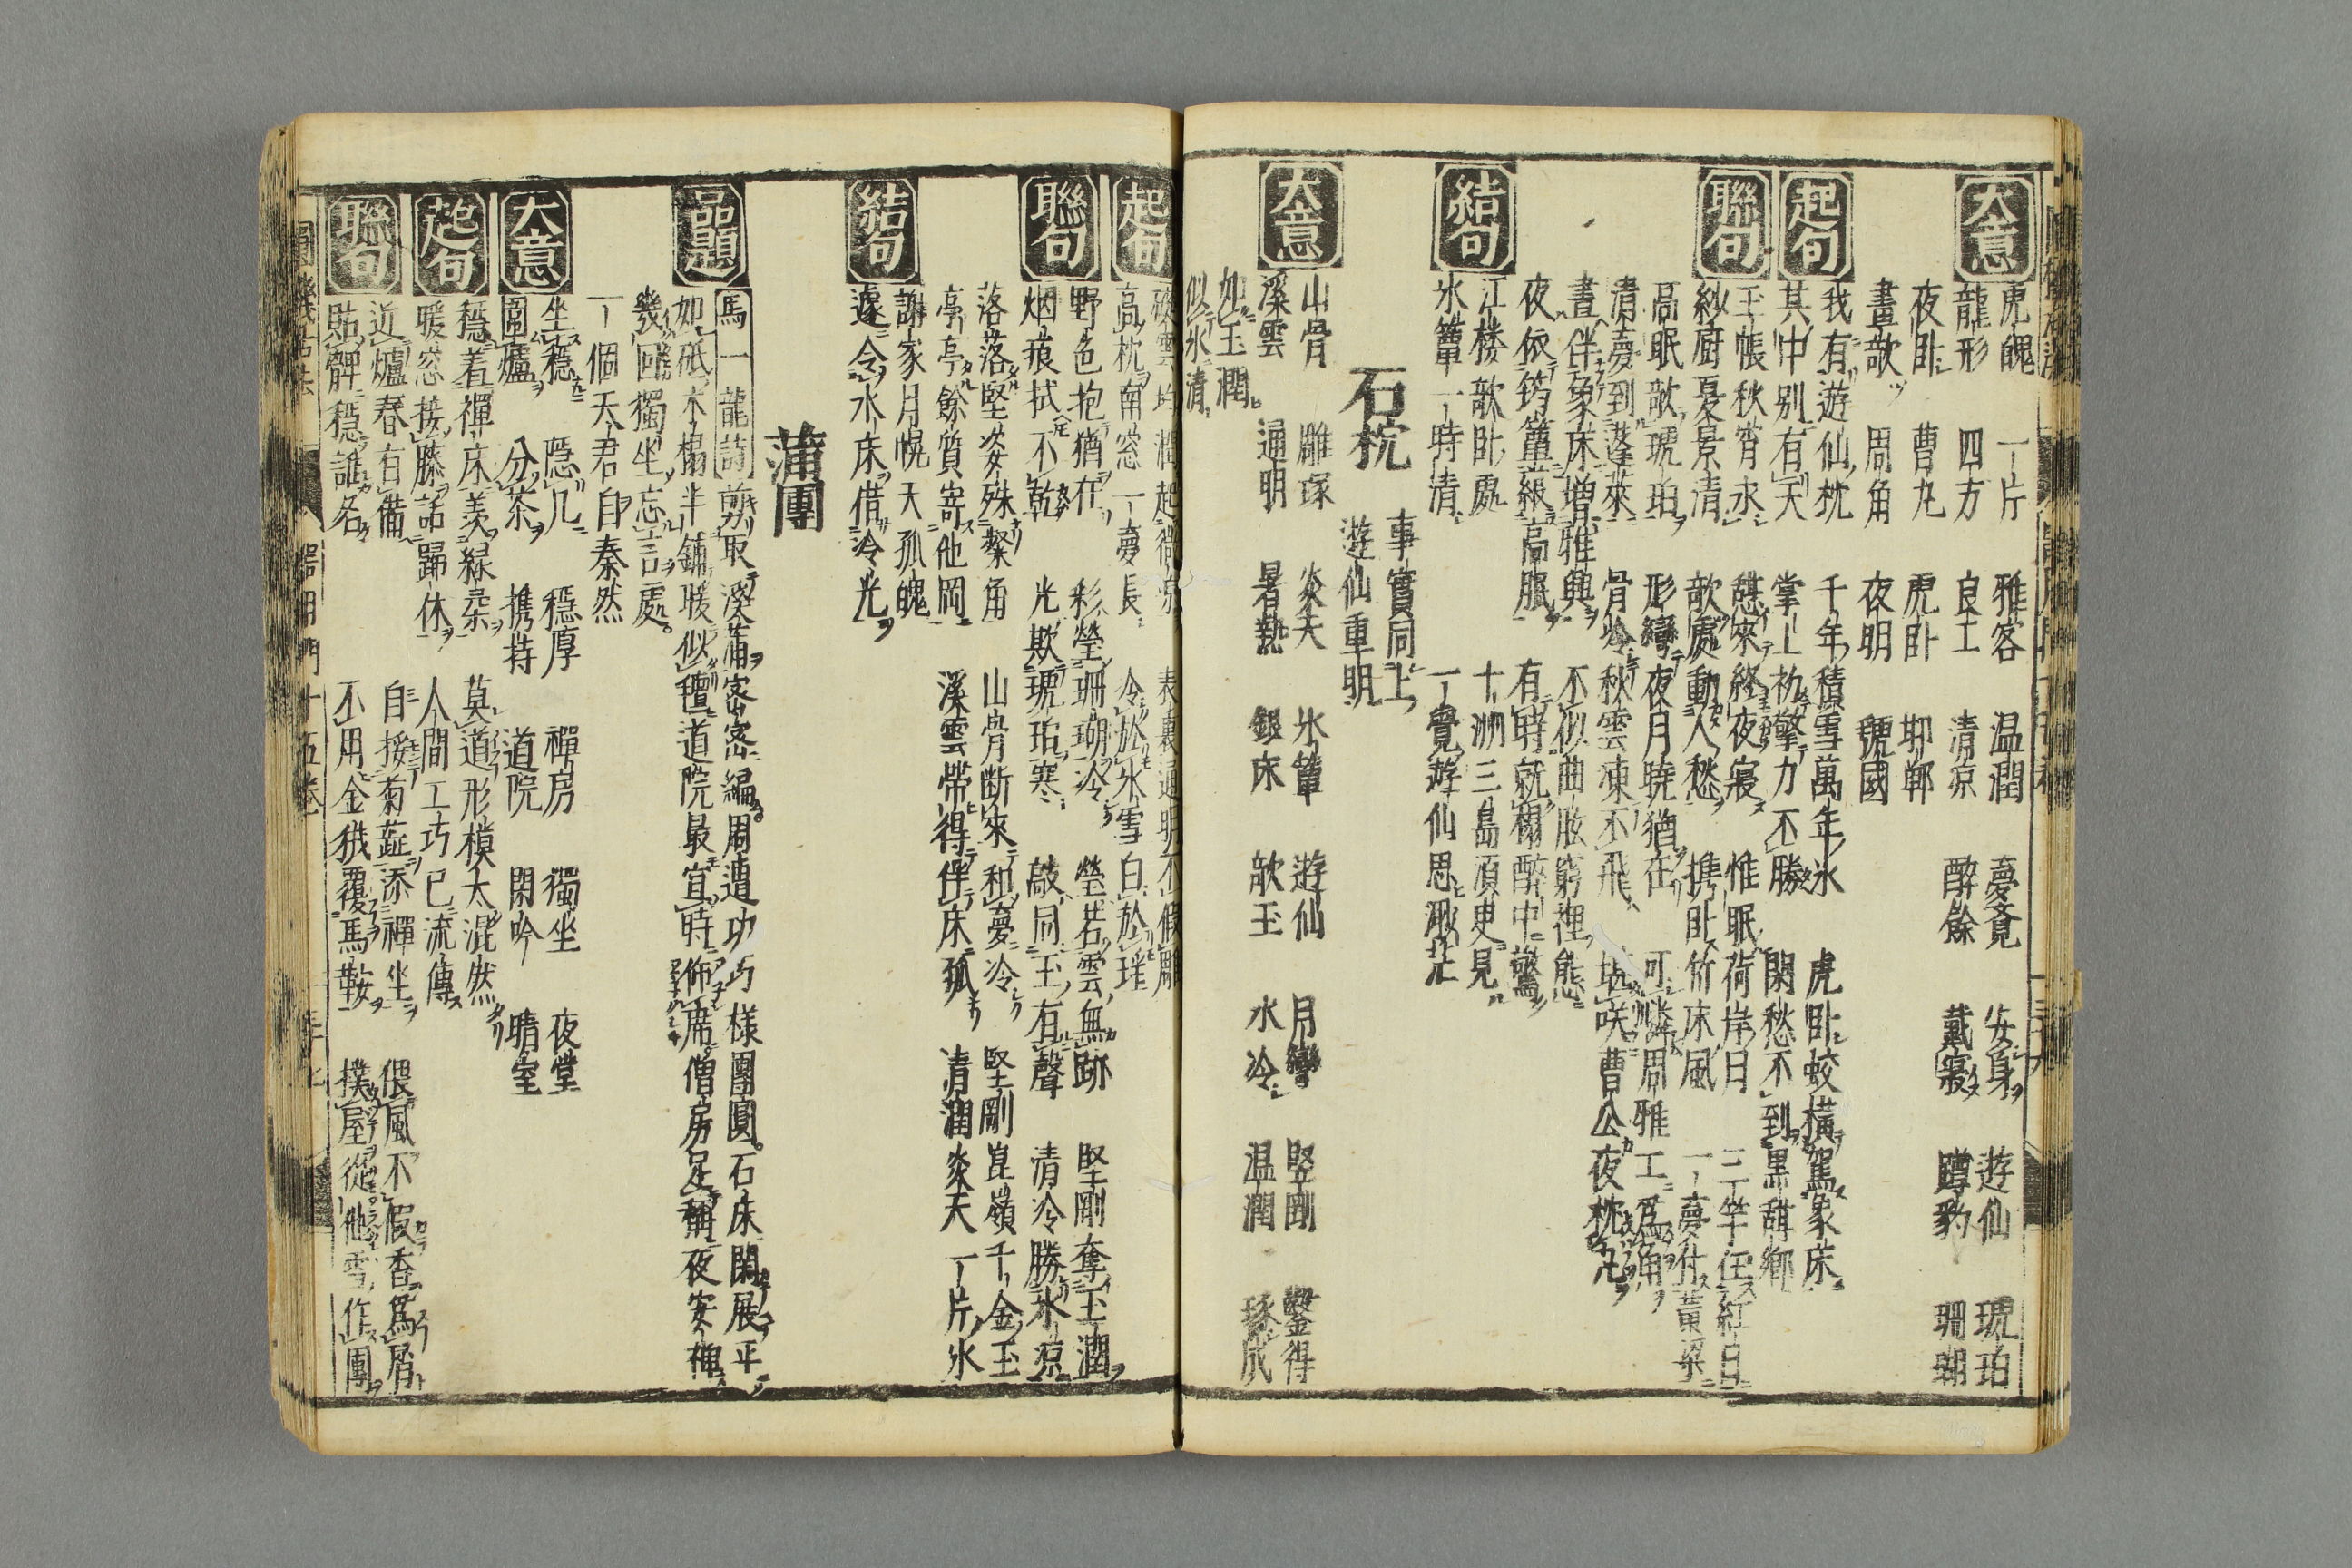 大意
虎魄 一片 雅客 温潤 夢覚 安身 遊仙 琥珀
龍形 四方 良工 清凉 醉餘 戴寢 蹲豹 珊瑚
夜卧 曹丸 虎卧 耶鄲
晝欹 周角 夜明 虢國
起句
我有遊仙枕 千年積雪萬年氷 虎卧蛟橫駕象床
其中別有天 掌上枕擎力不勝 閑愁不到黒甜鄉
聯句
玉帳秋宵永 憇來経夜寢 惟眠荷岸日 三竿任紅日
紗厨夏景清 欹處動人愁 携卧竹床風 一夢付黄梁
高眠欹琥珀 形彎夜月暁猶在 可憐周雅工為角
清夢到蓬莱 骨冷秋雲凍不飛 咲曹公夜枕丸
晝伴象床増雅興 不似曲肱窮裡態
夜依筠簟薬高眠 有時就榻醉中驚
結句
江楼欹卧處 十洲三島頂史見
氷簟一時清 一覺遊仙思渺茫
石枕 事實同上 遊仙重明
大意
山骨 雕琢 炎天 氷簟 遊仙 月彎 堅剛 鑿得
溪雲 通明 暑熱 銀床 欹玉 水冷 温潤 琢成
如玉潤
似氷清
起句
潤起微凉 表裏通明不假雕
高枕南窓一夢長 冷於氷雪白於瑤
聯句
野色抱猶在 彩瑩珊瑚冷 瑩若雲無跡 堅剛奪玉潤
烟痕拭不乾 光欺琥珀寒 敲同玉有聲 清冷勝氷凉
落落堅姿殊繫角 山骨断來和夢冷 堅剛崑嶺千金玉
亭亭餘質寄他岡 溪雲帯得伴床孤 清潤炎天一片氷
結句
謝家月幌天孤魄
遽令水床借冷光
蒲團
品題
馬一龍詩 剪取溪蒲宻宻編周遭功巧様團圓石床閑展平
如砥木榻半鋪暖似氊道院最宜時佈席僧房足稱夜安禅
幾囘獨坐忘言處
一個天君自泰然
大意
坐穩 隠几 穩厚 禪房 獨坐 夜堂
圍爐 分茶 携持 道院 閑吟 晴室
起句
穩着禪床羨緑朶 莫道形模太混然
暖窓接膝話歸休 人間工巧已流傳
聯句
近爐春有備 自接菊蕋添禪坐 偎風不假香為屑
貼髀穩誰名 不用金狨覆馬鞍 樸屋從他雪作團
器用門十五卷